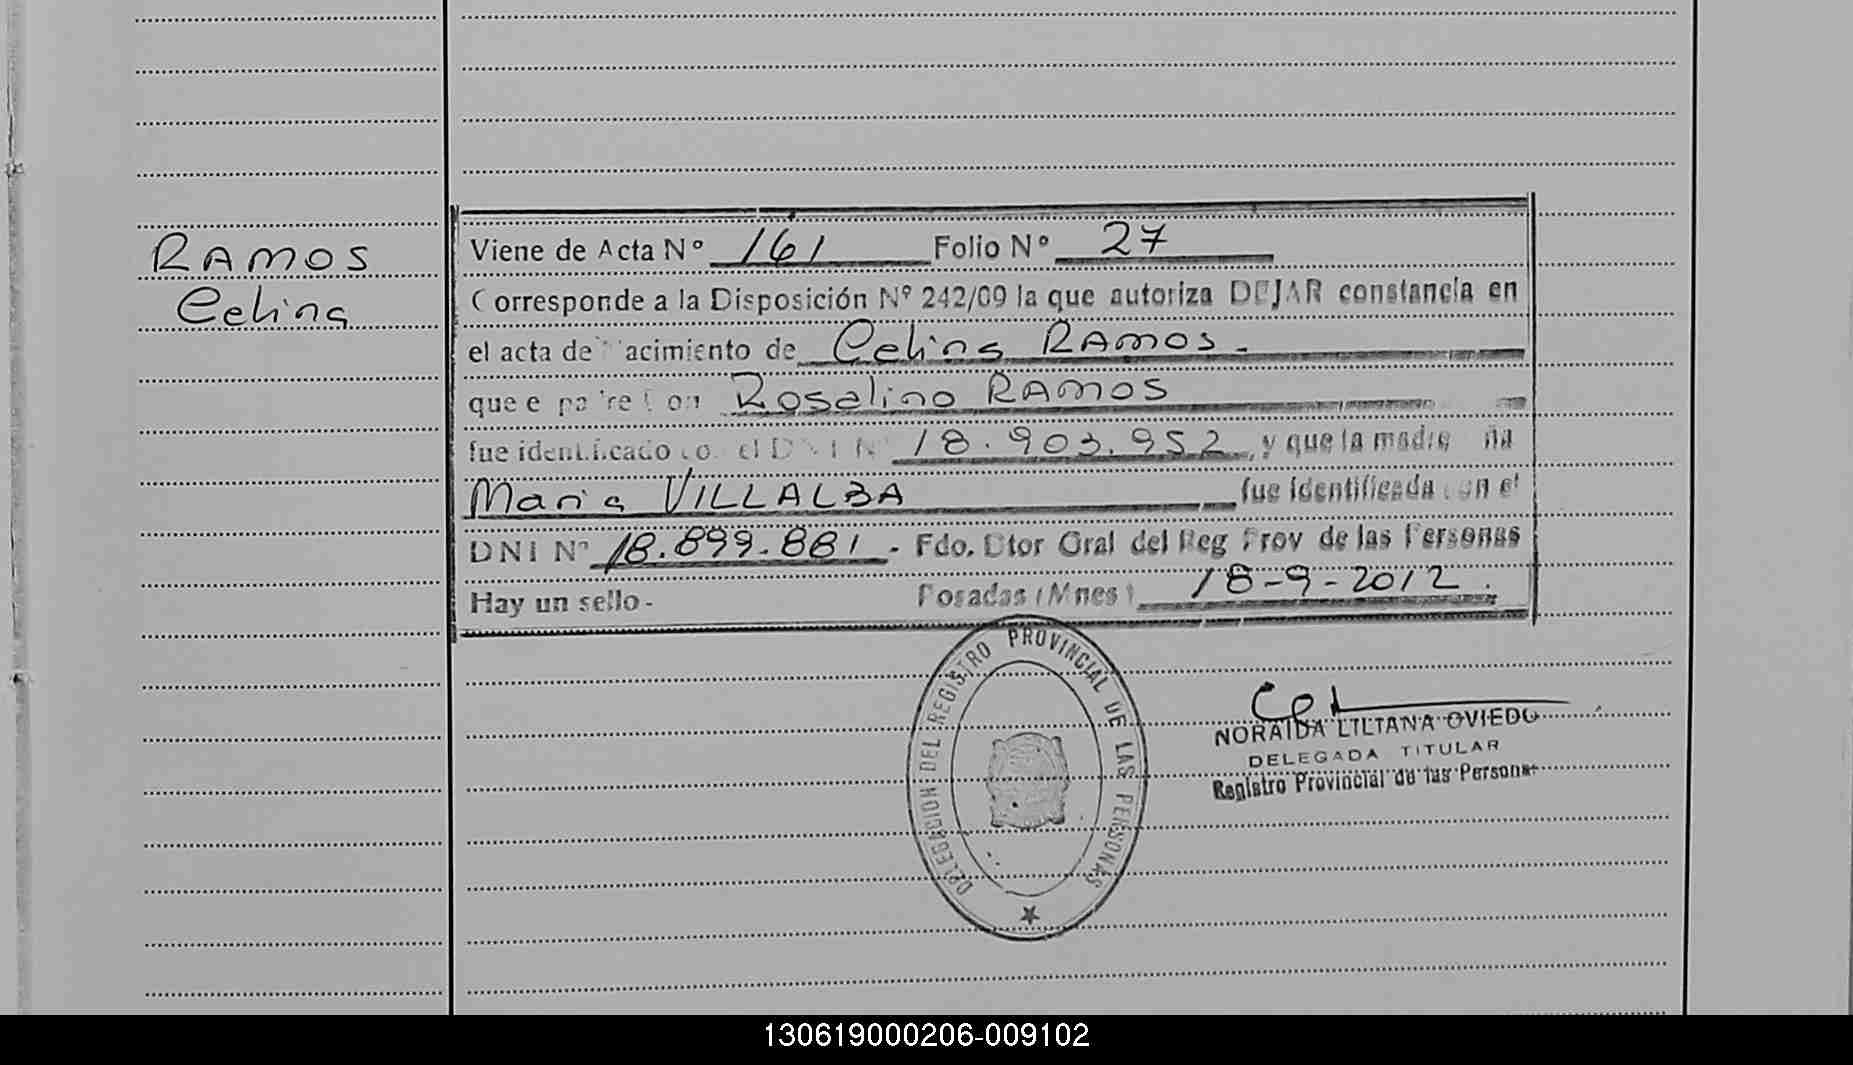 RAMOS
Celina
Viene de Acta Nº 161 Folio Nº 27
Corresponde a la Disposición Nº 242/09 la que autoriza DEJAR constancia en
el acta de nacimiento de Celina RAMOS.-
que e padre Don Roselino RAMOS
fue identificado con el DNI Nº 18.903.952, y que la madre ña
Maria VILLALBA fue identificada con el
DNI Nº 18.899.881.- Fdo. Dtor Gral del Reg Prov de las Personas
Hay un sello- Posadas (Mnes) 18-9-2012.
DELEGACION DEL REGISTRO PROVINCIAL DE LAS PERSONAS
NORAIDA LILIANA OVIEDO
DELEGADA TITULAR
Registro Provincial de las Personas
130619000206-009102